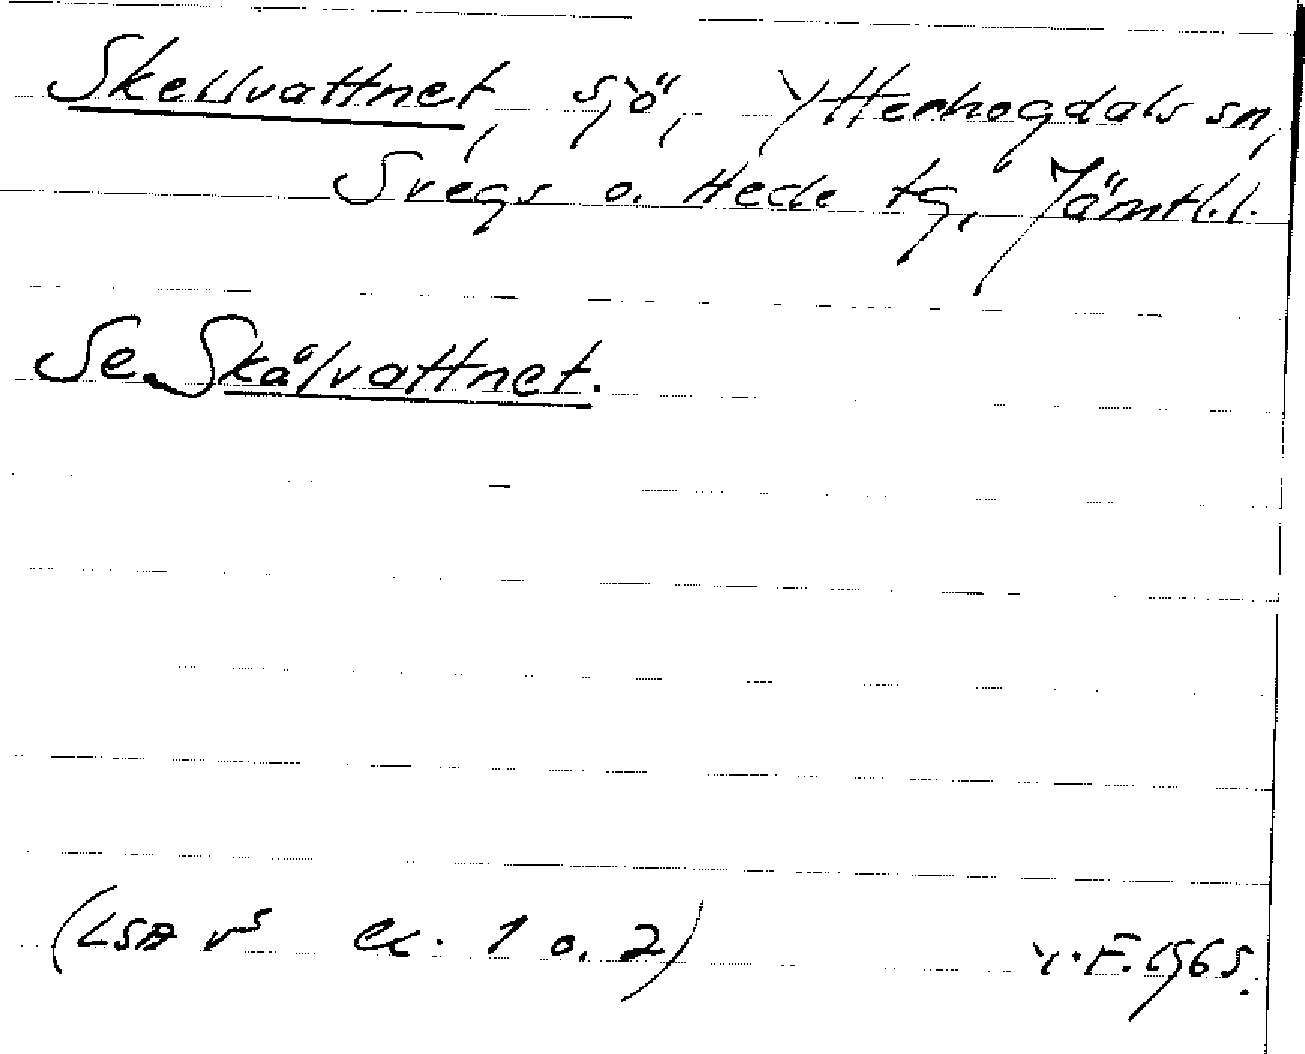 Skellvattnet, sjö, Ytterhogdals sn,
Svegs o. Hede tg, Jämtl.l.
Se Skålvattnet.
(LSA ex. 1 o. 2) F. 1965.